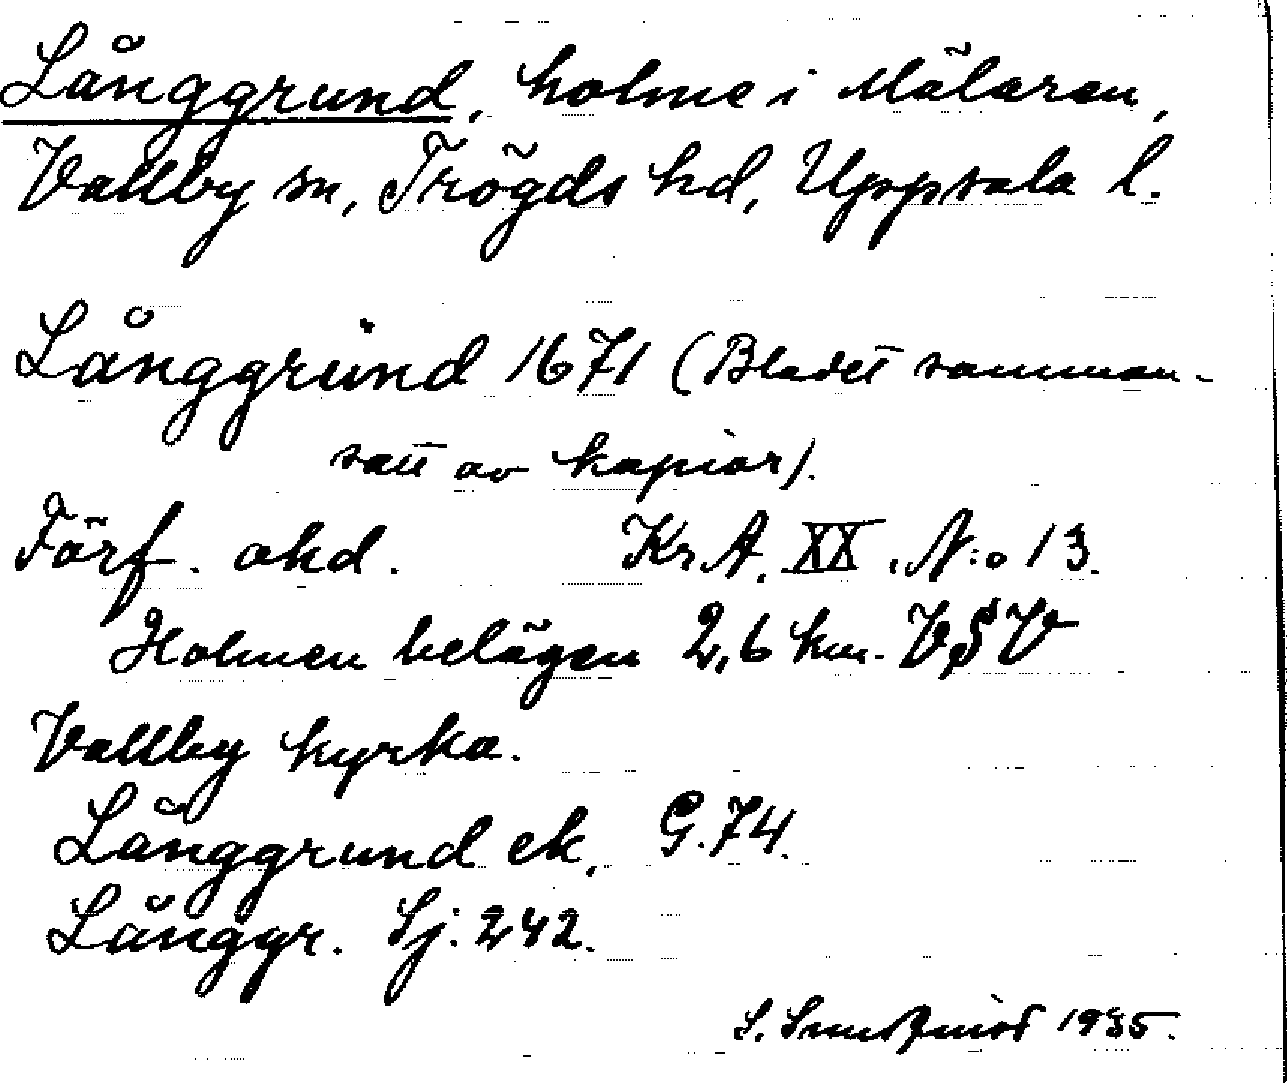 Långgrund, holme i Mälaren,
Vallby sn, Trögds hd, Uppsala l.
Långgrund 1671 (Bladet samman-
satt av kopior).
Förf. okd. Kr.A. XX. N:o 13.
Holmen belägen 2,6 km. VSV
Vallby kyrka.
Långgrund ek. G.74.
Långgr. Sj. 242.
S. 1935.